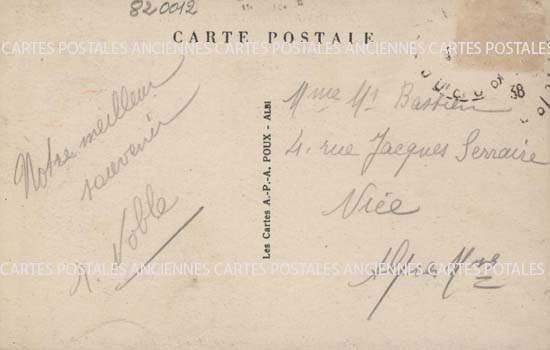 820012
CARTE POSTALE
CARTES POSTALES ANCIENNES CARTES POSTALES ANCIENNES CARTES POSTALES
38
Notre meilleur
souvenir
Noble
Les Cartes A.-P.-A. POUX - ALBI
Mme Bastien
4. rue Jacques Serraire
Nice
CARTES POSTALES ANCIENNES CARTES POSTALES ANCIENNES CARTES POSTALES